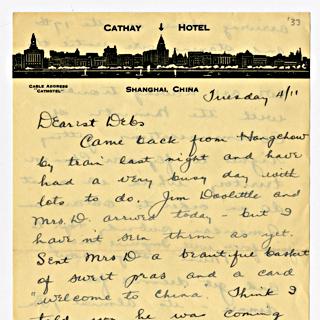 '33
CATHAY HOTEL
CABLE ADDRESS
"CATHOTEL"
SHANGHAI, CHINA
Tuesday 4/11
Dearest Debs
Came back from Hangchow
by train last night and have
had a very busy day with
lots to do. Jim Doolittle and
Mrs. D. arrived today - but I
haven't seen them as yet.
Sent Mrs D a beautiful basket
of sweet peas and a card
"Welcome to China". Think I
told you he was coming